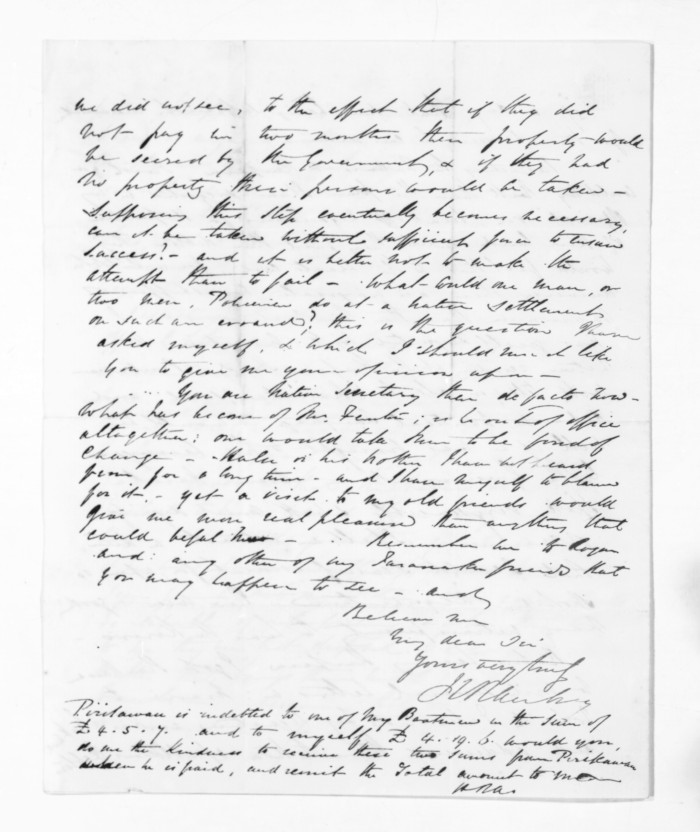 we did not see, to the effect that if they did
not pay in two months their property would
be seized by the Government, & if they had
no property their persons would be taken –
Supposing this step eventually becomes necessary,
can it be taken without sufficient force to ensure
success? – and it is better not to make the
attempt than to fail – what would one man, or
two men, Policemen do at a native settlement
on such an errand? this is the question I have
asked myself, & which I should much like
you to give me your opinion upon –
You are Native Secretary then de facto now –
What has become of Mr. Fenton; is he out of office
altogether: one would take him to be fond of
change – Halse or his brother I have not heard
from for a long time – and I have myself to blame
for it, – yet a visit to my old friends would
give me more real pleasure than anything that
could befal me – Remember me to Rogan
and any other of my Taranaki friends that
you may happen to see – and
Believe me
My dear Sir
Yours very truly
Pirikawau is indebted to one of my Boatmen in the Sum of
£4.5.7. and to myself £4.19.6. would you
do me the kindness to receive these two sums from Pirikawau
when he is paid, and remit the Total amount to me